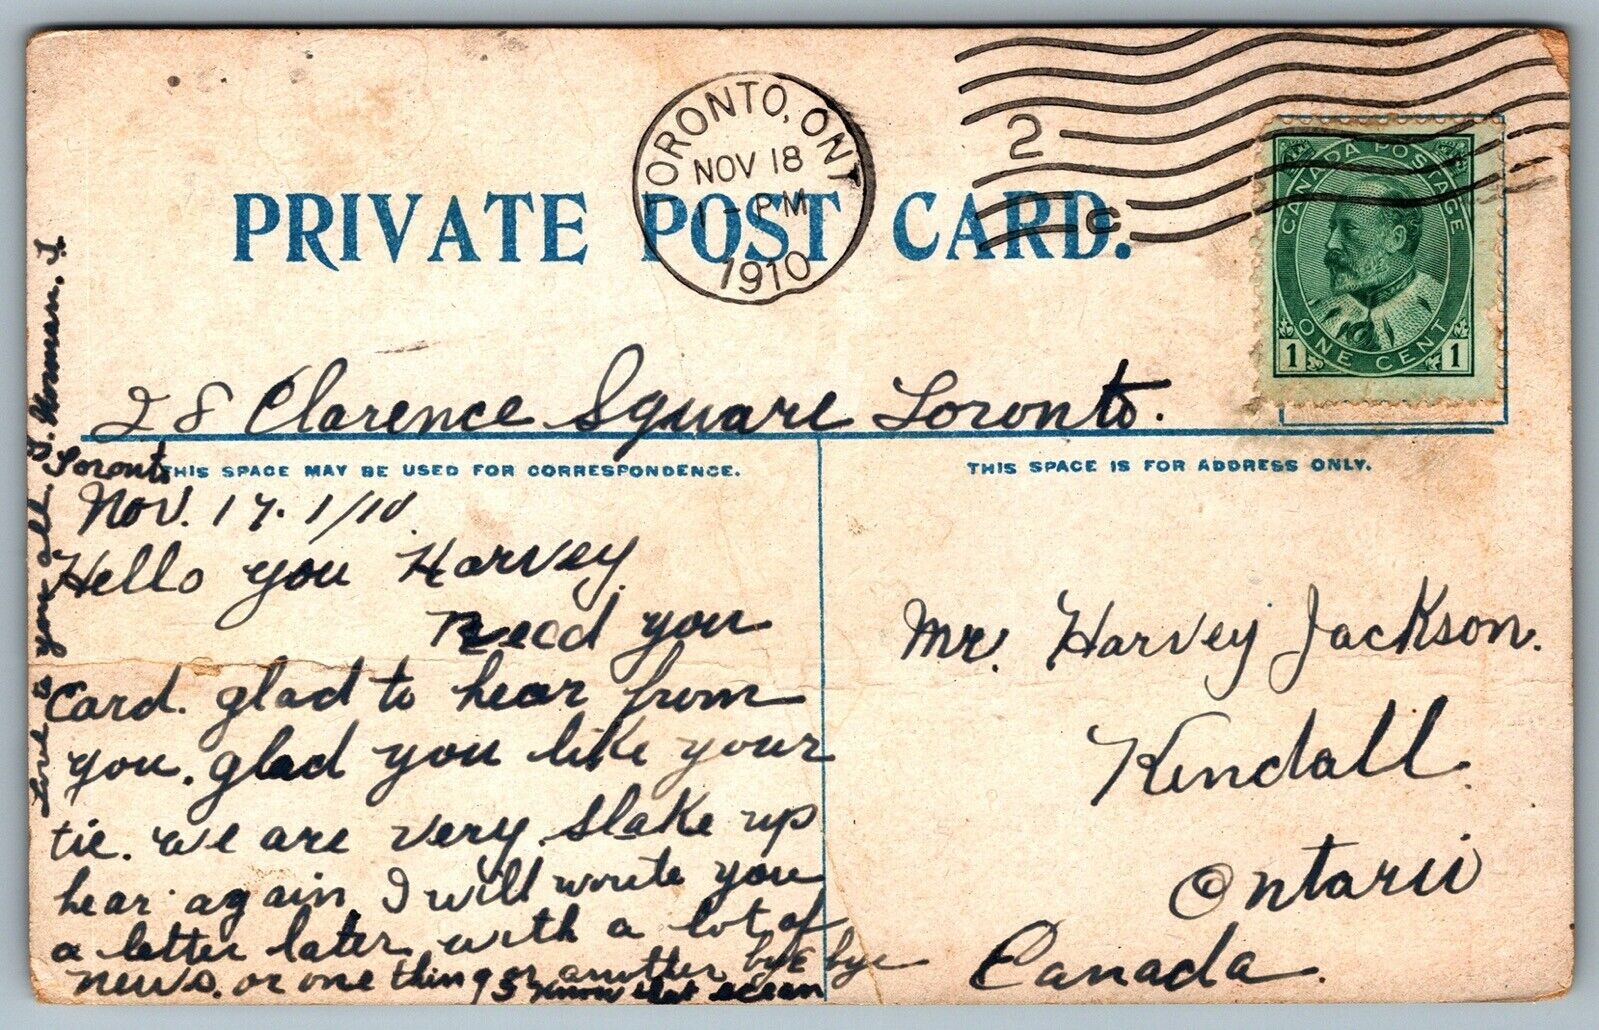 TORONTO, ONT
NOV 18
1 - PM
1910
2
C
CANADA POSTAGE
1 ONE CENT 1
PRIVATE POST CARD.
28 Clarence Square Toronto.
THIS SPACE MAY BE USED FOR CORRESPONDENCE.
THIS SPACE IS FOR ADDRESS ONLY.
Toronto
Nov. 17. 1/10.
Hello you Harvey.
Recd you
Card. glad to hear from
you. glad you like your
tie. we are very slake up
hear again I will write you
a letter later with a lot of
news. or one thing or another bye bye
Love to you all. Norman. J.
Mr. Harvey Jackson.
Kendall.
Ontario
Canada.